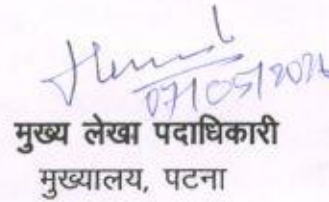 07/05/2026
मुख्य लेखा पदाधिकारी
मुख्यालय, पटना